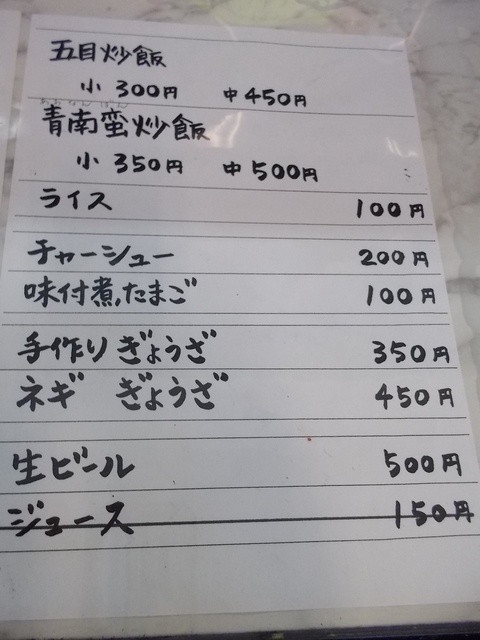 五目炒飯
小 300円 中 450円
あおなんばん
青南蛮炒飯
小 350円 中 500円
ライス 100円
チャーシュー 200円
味付煮たまご 100円
手作りぎょうざ 350円
ネギ ぎょうざ 450円
生ビール 500円
ジュース 150円